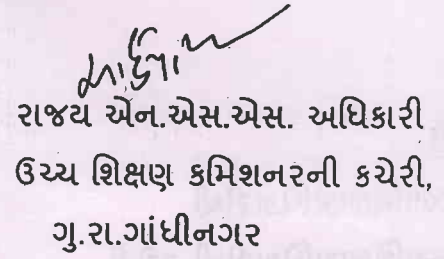 રાજય એન.એસ.એસ. અધિકારી
ઉચ્ચ શિક્ષણ કમિશનરની કચેરી,
ગુ.રા.ગાંધીનગર